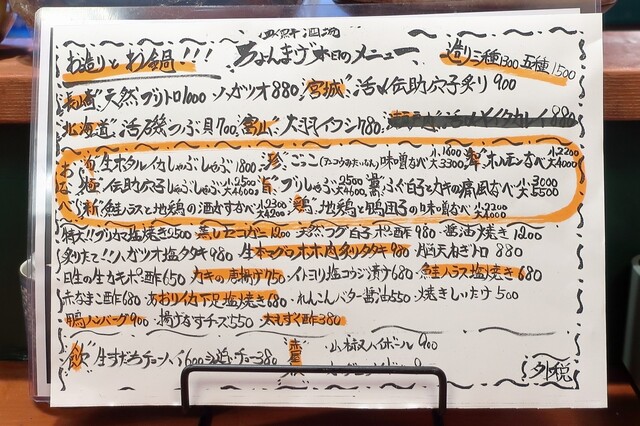 四季酒酒 ちょんまげ 本日のメニュー
お造りとお鍋!!!
造り三種1300 五種1500
長崎 天然ブリトロ1000 ソーガツオ880 宮城 活〆伝助穴子炙り 900
北海道 活磯つぶ貝700 富山 大羽イワシ780
おなべ
海 生ホタルイカしゃぶしゃぶ1800 珍 ここ 味噌なべ 小1600 大3300 ホルモンなべ 小2200 大4000
極 伝助穴子しゃぶしゃぶ 小2500 大4600 旨 ブリしゃぶ 小2500 大4600 ふぐ白子とカキの痛風なべ 小3000 大5500
新 鮭ハラスと地鶏の酒かすなべ 小2300 大4200 鶏 地鶏と鴨団子の味噌なべ 小2200 大4000
特大!!ブリカマ塩焼き2500 蒸しセコガニ1200 天然フグ白子ポン酢980 醤油焼き1200
炙りたて!!ソーガツオ塩タタキ980 生本マグロホホ肉炙りタタキ980 脳天ねぎトロ880
日生の生カキポン酢650 カキの唐揚げ750 イトヨリ塩コウジ漬け680 鮭ハラス塩焼き680
赤なまこ酢680 あおりイカ下足塩焼き680 れんこんバター醤油550 焼きしいたけ500
鴨ハンバーグ900 揚げなすチーズ550 太もずく酢380
飲 生すだちチューハイ600 380 ハイボール900
外税